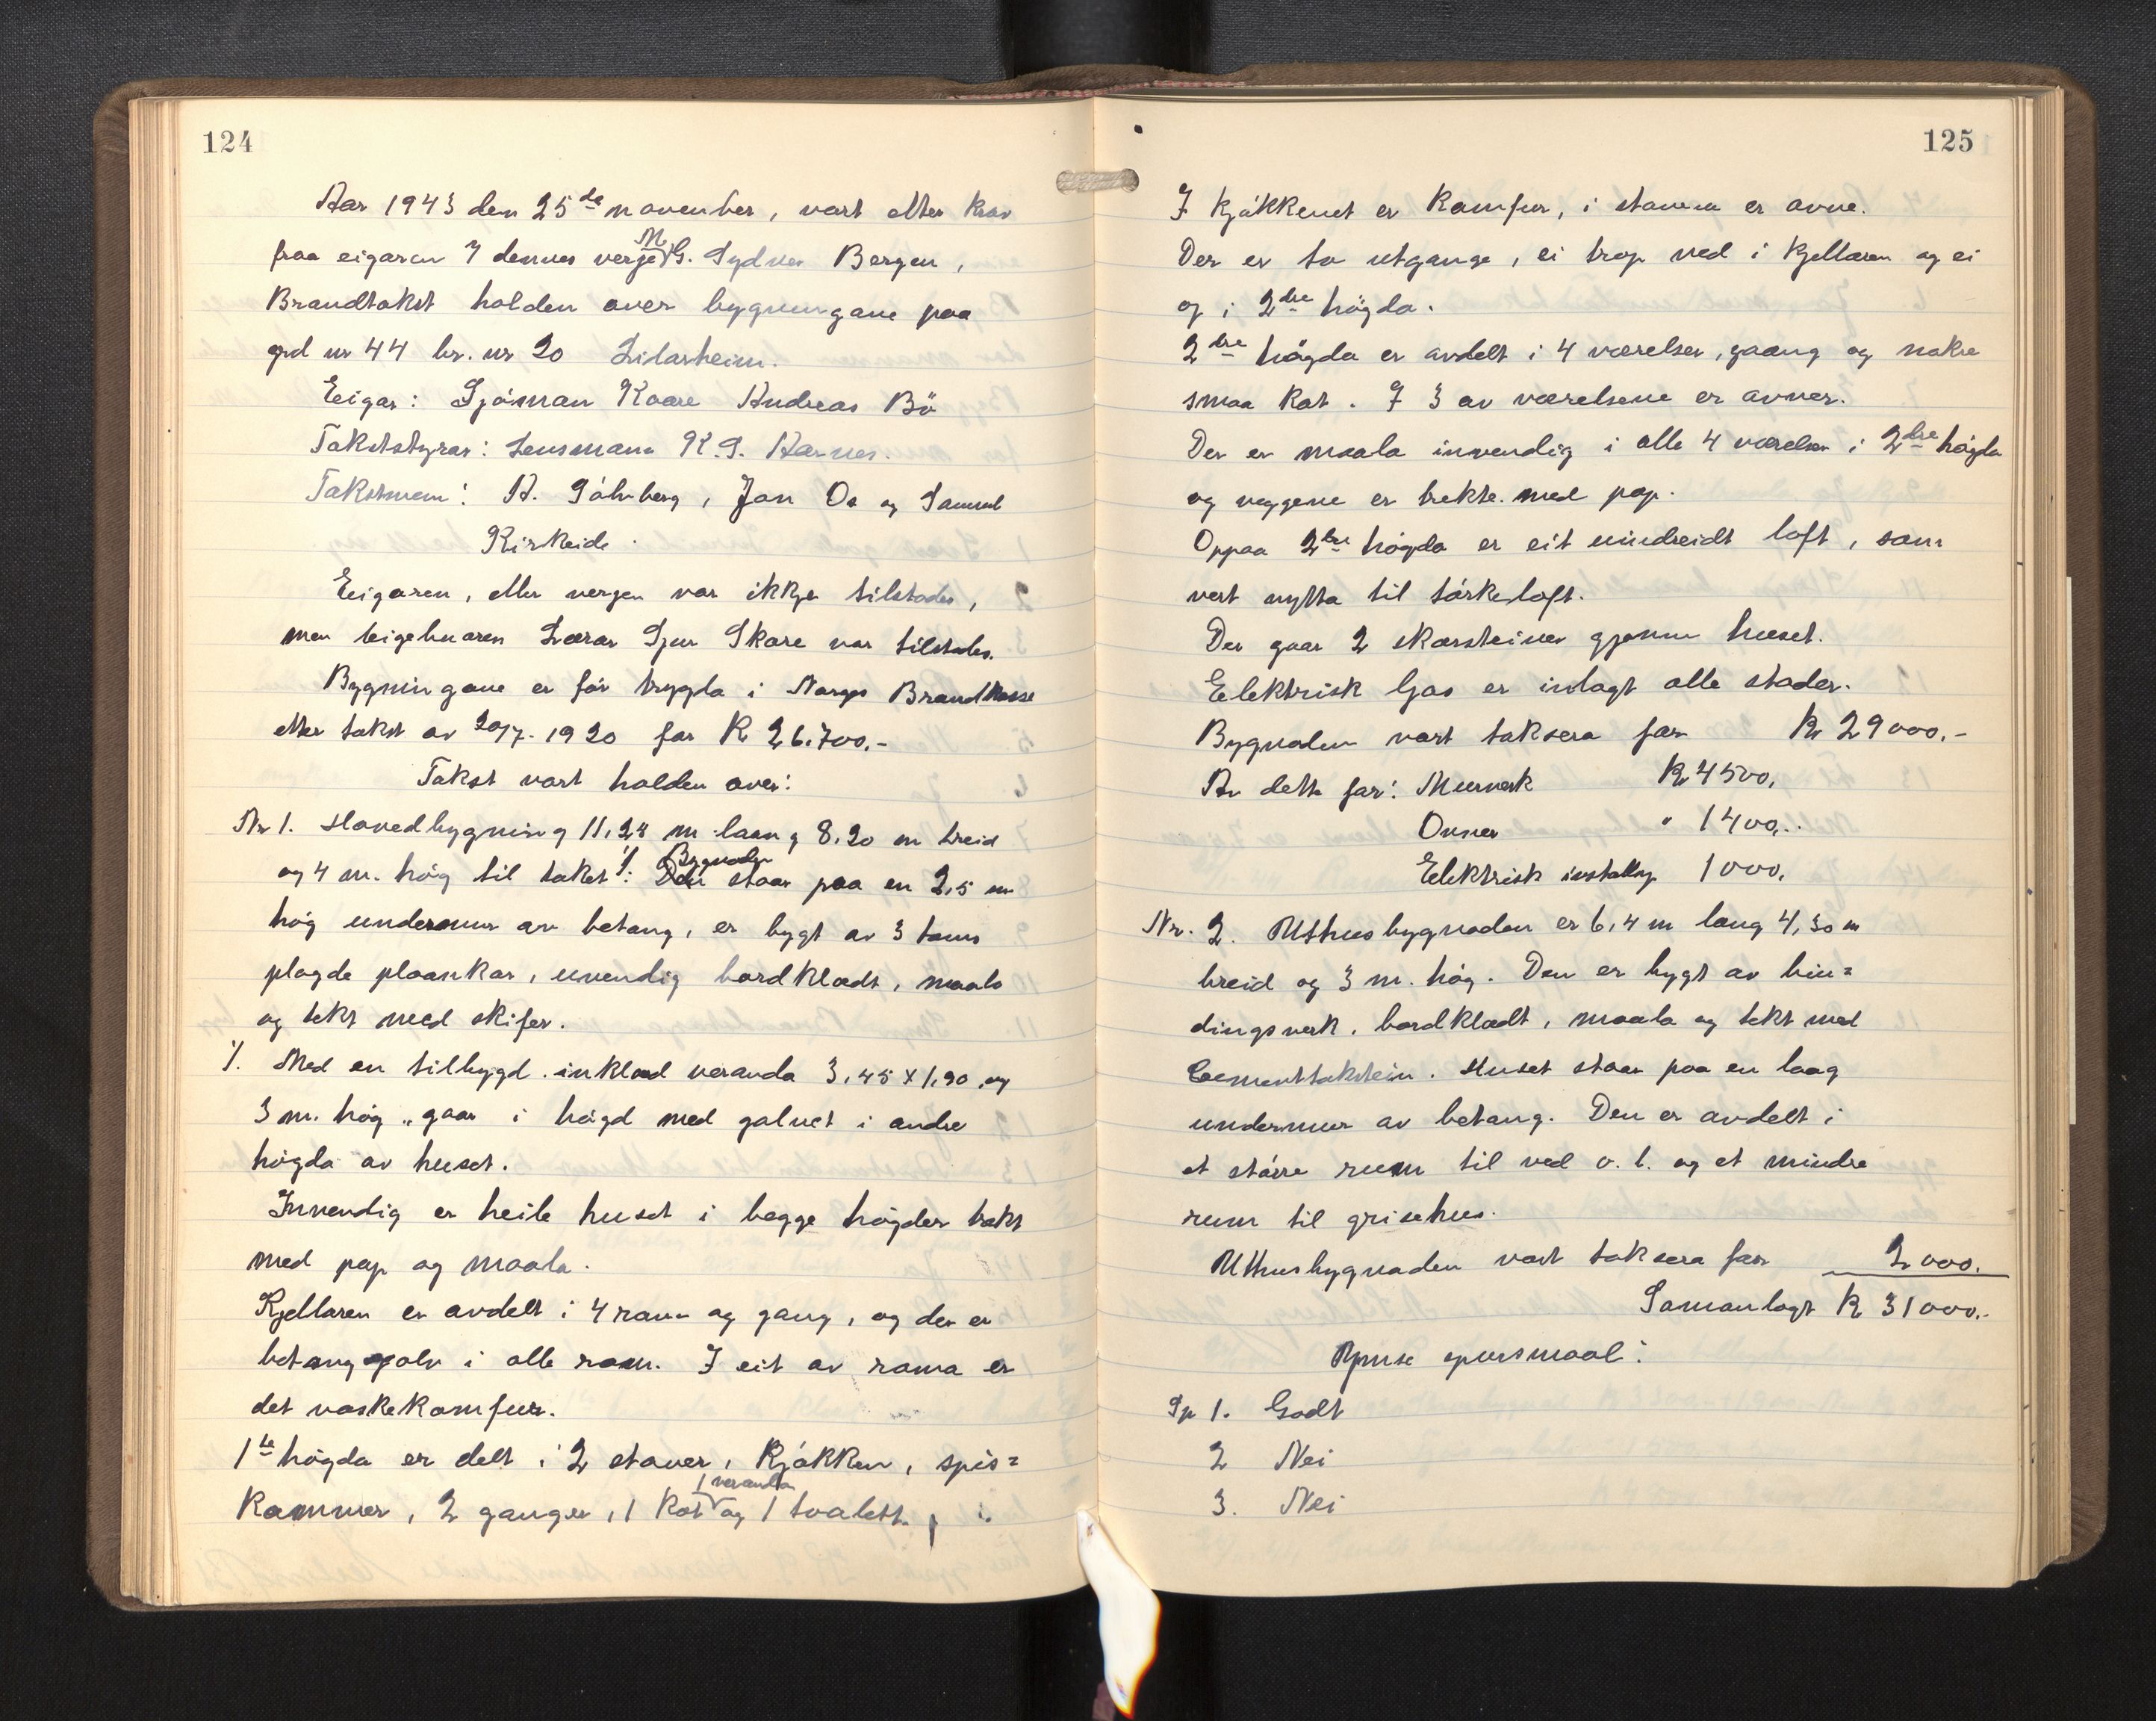 124
Aar 1943 den 25de november, vart etter krav
fraa eigaren ɔ dennes verje M. G. Sydnes Bergen,
Brandtakst halden over bygningane paa
grd nr 44 br. nr 20 Lidarheim.
Eigar: Sjóman Kaare Andreas Bö
Takststyrar: Lensmann K. S. Aarnes.
Takstmenn: A. Sólvberg, Jon Os og Samuel
Kirkeide.
Eigaren, eller vergen var ikkje tilstades,
men leigebuaren Lærar Sjur Skare var tilstades.
Bygningane er fór trygda i Norges Brandkasse
etter takst av 20/7-1920 for Kr 26.700.-
Takst vart halden over:
Nr 1. Hovedbygning 11,28 m laang 8,20 m breid
og 4 m. hóg til taket ⁒ Bygnaden staar paa en 2,5 m
hóg undermur av betong, er bygt av 3 toms
plogde plaankar, utvendig bordklædt, maala
og tekt med skifer.
⁒ Med en tilbygd inklæd veranda 3,45 x 1,90 og
3 m. hóg, gaar i hógd med golvet i andre
hógda av huset.
Innvendig er heile huset i begge hógder trekt
med pap og maala.
Kjellaren er avdelt i 4 rom og gang, og der er
betonggolv i alle rom. I eit av roma er
det vaskekomfur.
1te hógda er delt i 2 stover, Kjókken, spis=
kammer, 2 ganger, 1 kot 1 veranda og 1 toalett.
125
I kjókkenet er Komfur, i stovene er ovne.
Der er to utgange, ei trop ned i kjellaren og ei
op i 2dre högda.
2dre högda er avdelt i 4 værelser, gaang og nokre
smaa kot. I 3 av værelsene er ovner.
Der er maala innvendig i alle 4 værelser i 2dre hógda
og veggene er trekte med pap.
Oppaa 2dre hógda er eit uindreidt loft, som
vert nytta til tórkeloft.
Der gaar 2 skorsteiner gjenum huset.
Elektrisk ljos er inlagt alle stader.
Bygnaden vart taksera for Kr 29000.-
Av dette for: Murverk Kr 4500,
Ovner " 1400,-
Elektrisk installasj. 1000,
Nr. 2. Uthusbygnaden er 6,4 m lang 4,30 m
breid og 3 m. hóg. Den er bygt av bin=
dingsverk, bordklædt, maala og tekt med
Cementtakstein. Huset staar paa en laag
undermur av betong. Den er avdelt i
et stórre rum til ved o. l. og et mindre
rum til grisehus.
Uthusbygnaden vart taksera for 2000.
Samanlagt Kr 31000.-
Ymse spursmaal:
Sp 1. Godt
2 Nei
3. Nei